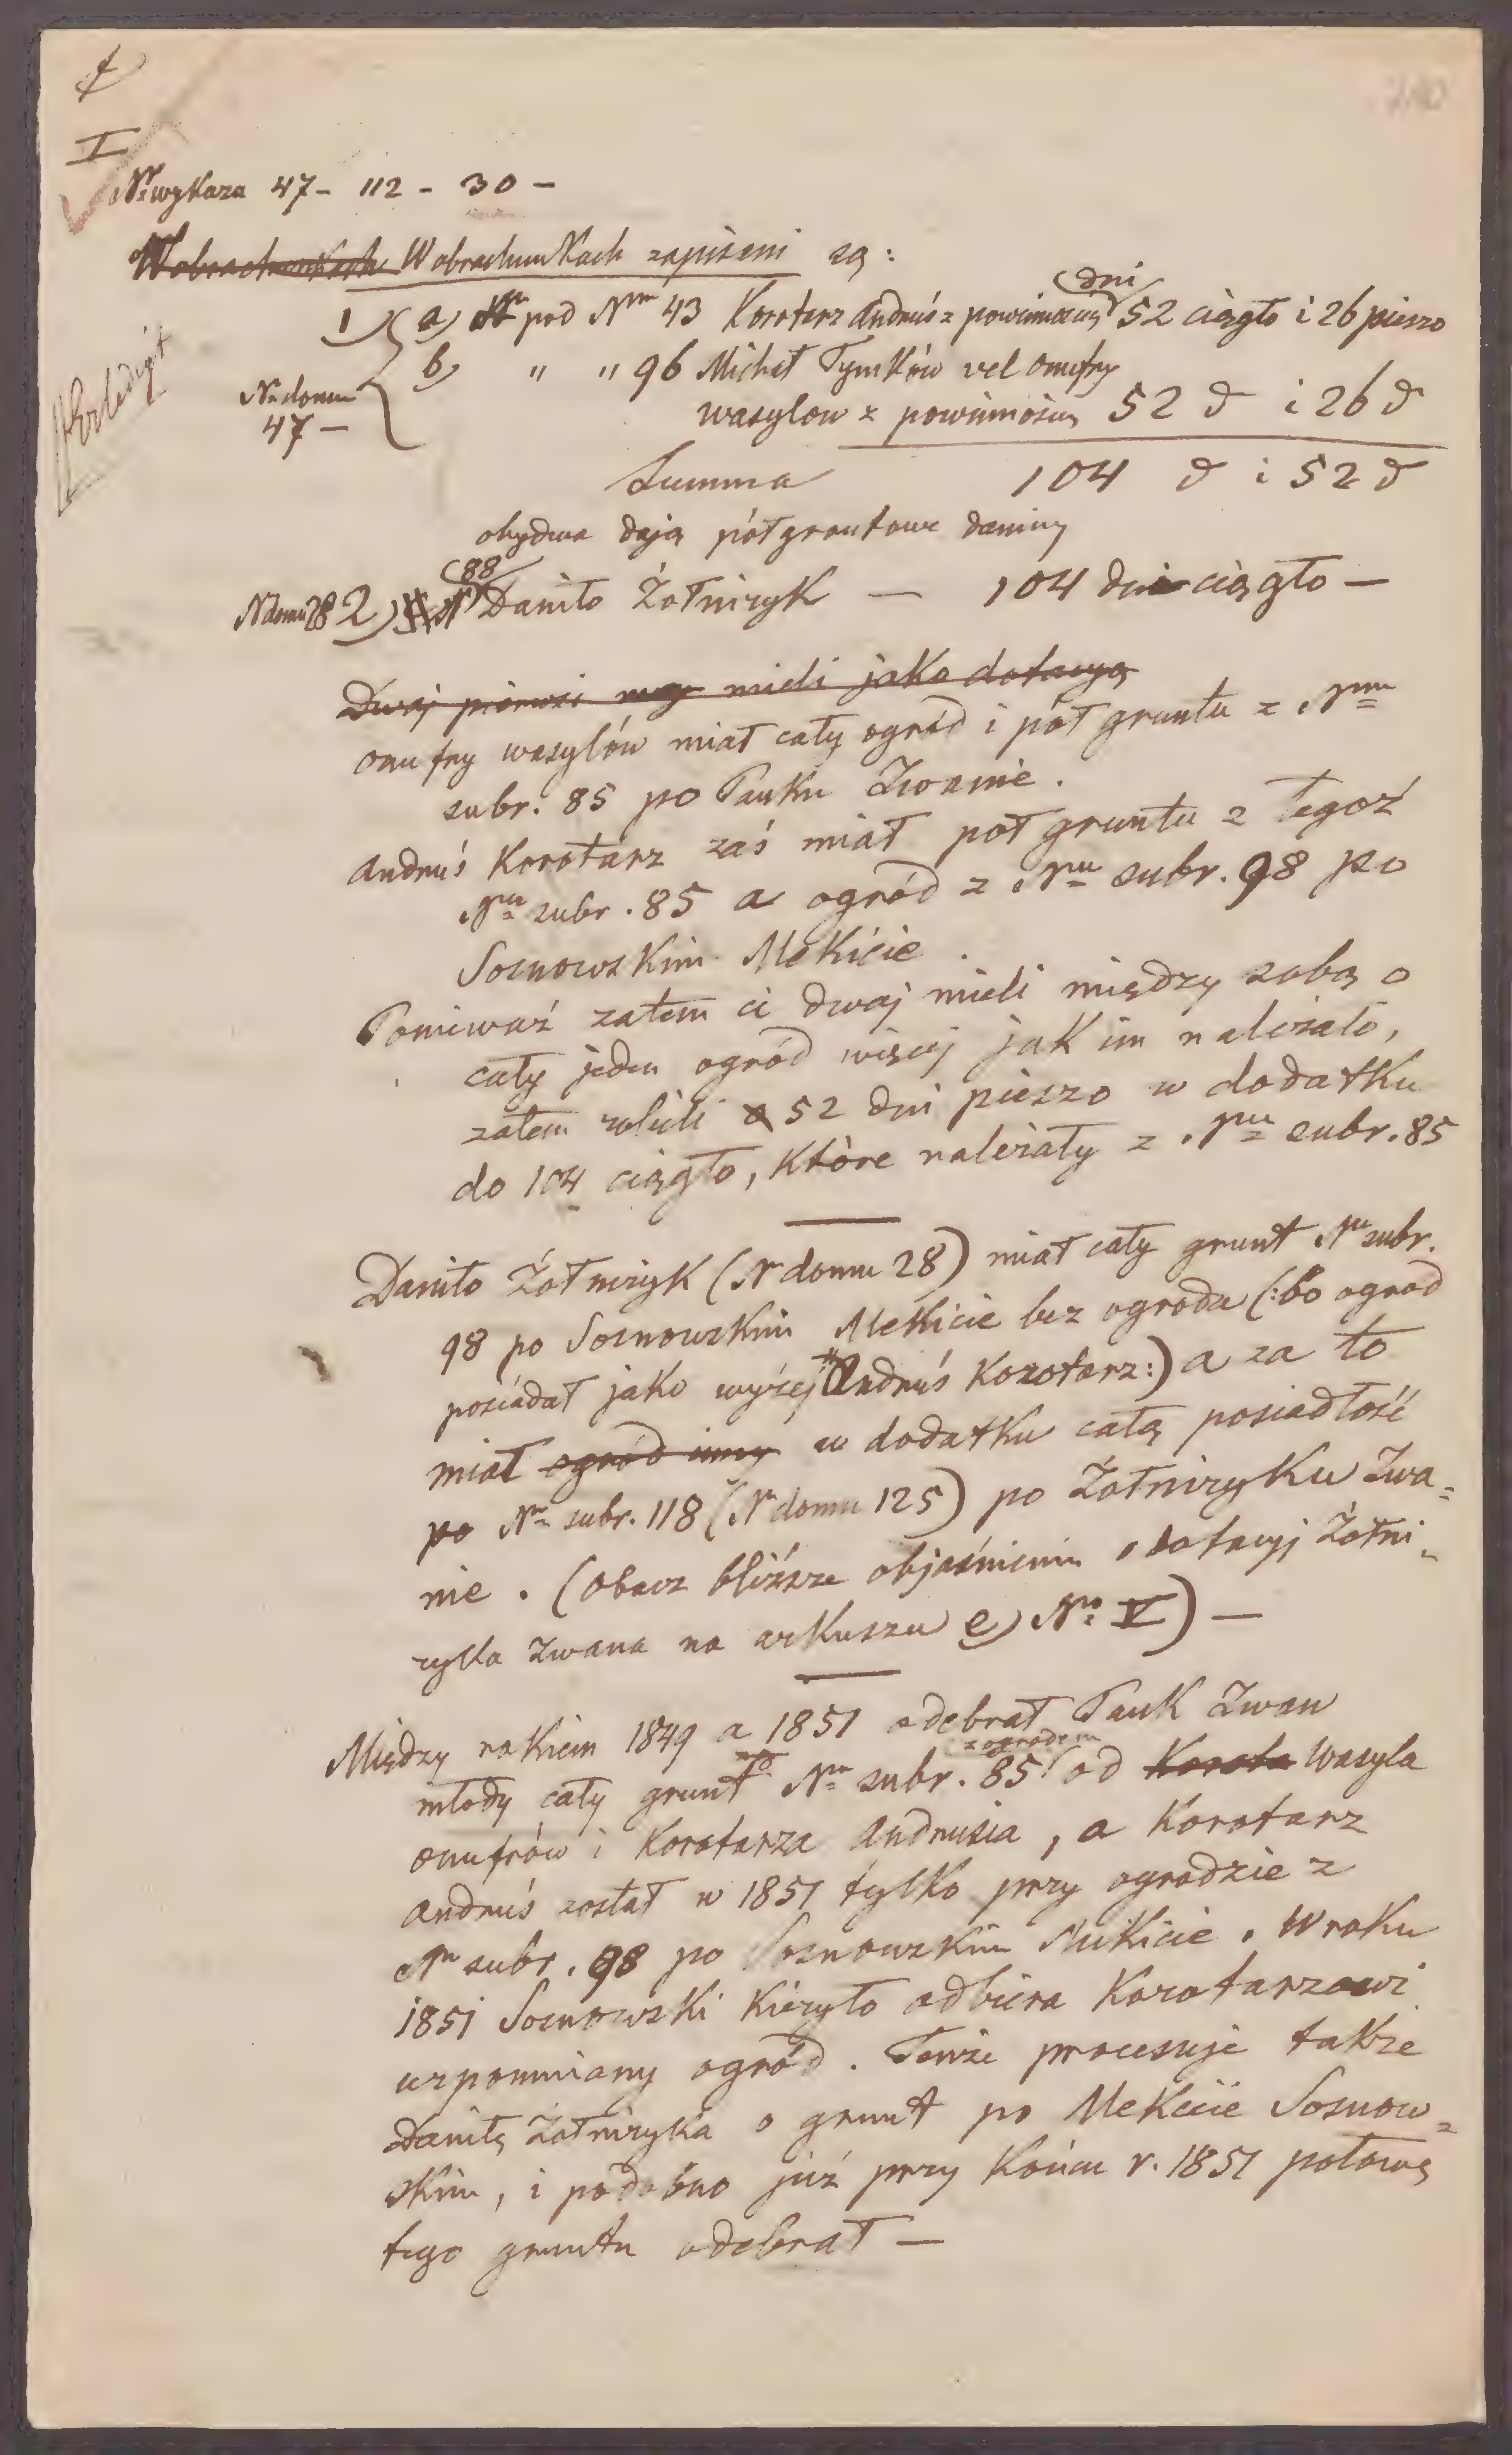 I
Nr wykaza 47 - 112 - 30 -
Wobrachunkach W obrachunkach zapisani są:
dni
1) a) pod Nrm 43 Korotarz Andruś z powinnością 52 ciągło i 26 pieszo
b) " " 96 Michał Tymków vel Onufry
Nr domu
47 —
wasylow z powinnością 52 d i 26 d
Summa 104 d i 52 d
obydwa dają półgruntowe daniny
88
N domu 28 2) Nr Daniło Żołniryk — 104 dni ciągło —
Erledigt
Dwaj pierwsi mieli jako dotacyą
Onufry wasylów miał cały ogród i pół gruntu z Nru
subr. 85 po Pauku Iwanie.
Andruś Korotarz zaś miał poł gruntu z tegoż
Nru subr. 85 a ogród z Nru subr. 98 po
Sosnowskim Mekicie.
Poniewaź zatem ci dwaj mieli między sobą o
cały jeden ogród więcej jak im należało,
zatem robili 52 dni pieszo w dodatku
do 104 ciągło, które należały z Nru subr. 85
Daniło Żołniryk (Nr domu 28) miał cały grunt Nr subr.
98 po Sosnowskim Mekicie bez ogrodu (:bo ogród
posiadał jako wyżej Andruś Korotarz:) a za to
miał ogród inny w dodatku całą posiadłość
po Nr subr. 118 (Nr domu 125) po Żołniryku Iwa=
nie. (obacz bliższe objaśnienie o dotacyj Żołni=
ryka Iwana na arkuszu e) No V) —
Między rokiem 1849 a 1851 odebrał Pauk Iwan
z ogrodem
młody cały grunt Nro subr. 85 od Korota Wasyla
Onufrów i Korotarza Andrusia, a Korotarz
Andruś został w 1851 tylko przy ogrodzie z
Nr subr. 98 po Sosnowskim Mikicie. W roku
1851 Sosnowski Kiryło odbiera Korotarzowi
wzpomniany ogród. Tenże procesuje także
Daniłę Żołniryka o grunt po Mekicie Sosnow=
skim, i podobno już przy końcu r. 1851 połowę
tego gruntu odebrał —